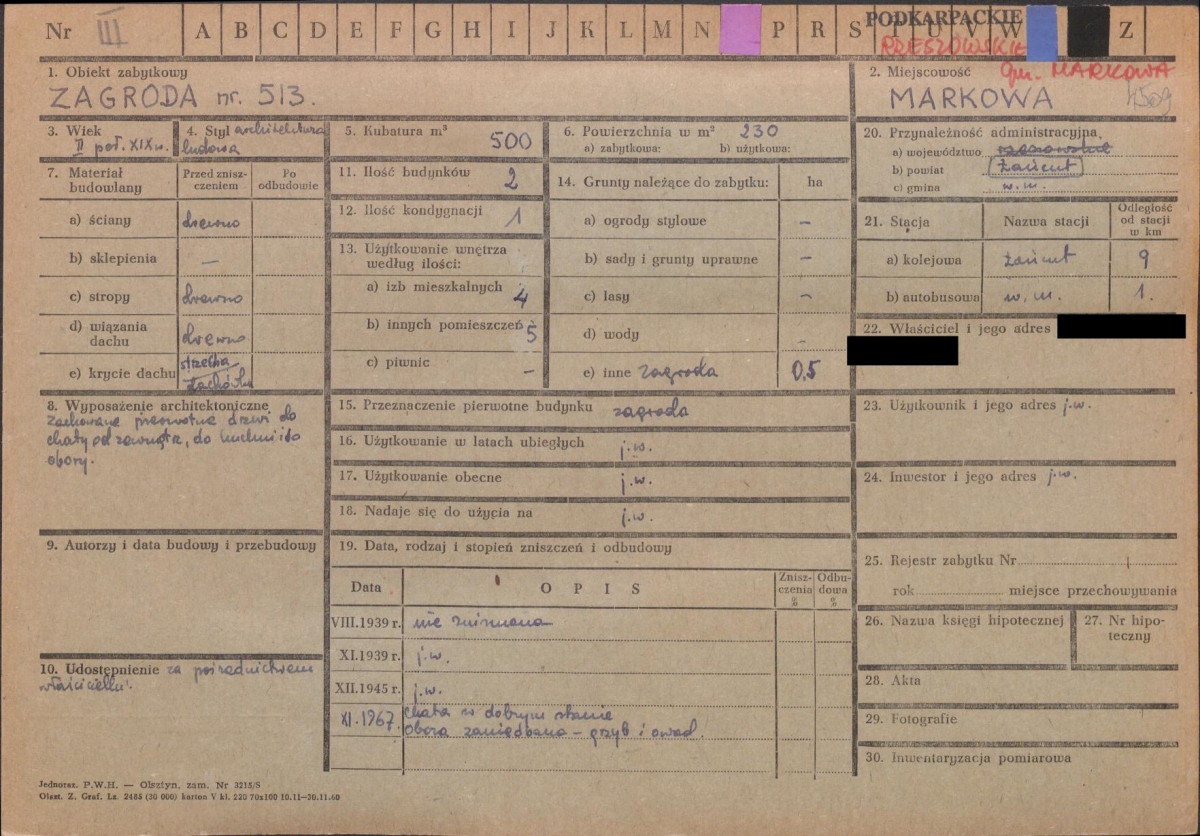 Nr III A B C D E F G H I J K L M N P R S T U V W Z
PODKARPACKIE
RZESZOWSKIE
gm. MARKOWA
1. Obiekt zabytkowy
ZAGRODA nr. 513.
2. Miejscowość
MARKOWA
3. Wiek
II poł. XIX w.
4. Styl architektura
ludowa
5. Kubatura m³ 500
6. Powierzchnia w m² 230
a) zabytkowa: b) użytkowa:
7. Materiał budowlany
Przed zniszczeniem
Po odbudowie
a) ściany drewno
b) sklepienia —
c) stropy drewno
d) wiązania dachu drewno
e) krycie dachu strzecha
dachówka
8. Wyposażenie architektoniczne
zachowane pierwotne drzwi do
chaty od zewnątrz, do kuchni i do
obory.
9. Autorzy i data budowy i przebudowy
10. Udostępnienie za pośrednictwem
właściciela.
11. Ilość budynków 2
12. Ilość kondygnacji 1
13. Użytkowanie wnętrza
według ilości:
a) izb mieszkalnych 4
b) innych pomieszczeń 5
c) piwnic –
14. Grunty należące do zabytku: ha
a) ogrody stylowe –
b) sady i grunty uprawne –
c) lasy –
d) wody –
e) inne zagroda 0,5
15. Przeznaczenie pierwotne budynku zagroda
16. Użytkowanie w latach ubiegłych j.w.
17. Użytkowanie obecne j.w.
18. Nadaje się do użycia na j.w.
19. Data, rodzaj i stopień zniszczeń i odbudowy
Data OPIS Zniszczenia % Odbudowa %
VIII.1939 r. nie zmieniona
XI.1939 r. j.w.
XII.1945 r. j.w.
XI.1967 chata w dobrym stanie
obora zaniedbana – grzyb i owad.
20. Przynależność administracyjna
a) województwo rzeszowskie
b) powiat Łańcut
c) gmina w.m.
21. Stacja Nazwa stacji Odległość od stacji w km
a) kolejowa Łańcut 9
b) autobusowa w.m. 1.
22. Właściciel i jego adres
23. Użytkownik i jego adres j.w.
24. Inwestor i jego adres j.w.
25. Rejestr zabytku Nr
rok miejsce przechowywania
26. Nazwa księgi hipotecznej
27. Nr hipoteczny
28. Akta
29. Fotografie
30. Inwentaryzacja pomiarowa
Jednoraz. P.W.H. — Olsztyn, zam. Nr 3215/S
Olszt. Z. Graf. Lz. 2465 (30 000) karton V kl. 220 70x100 10.11—30.11.60